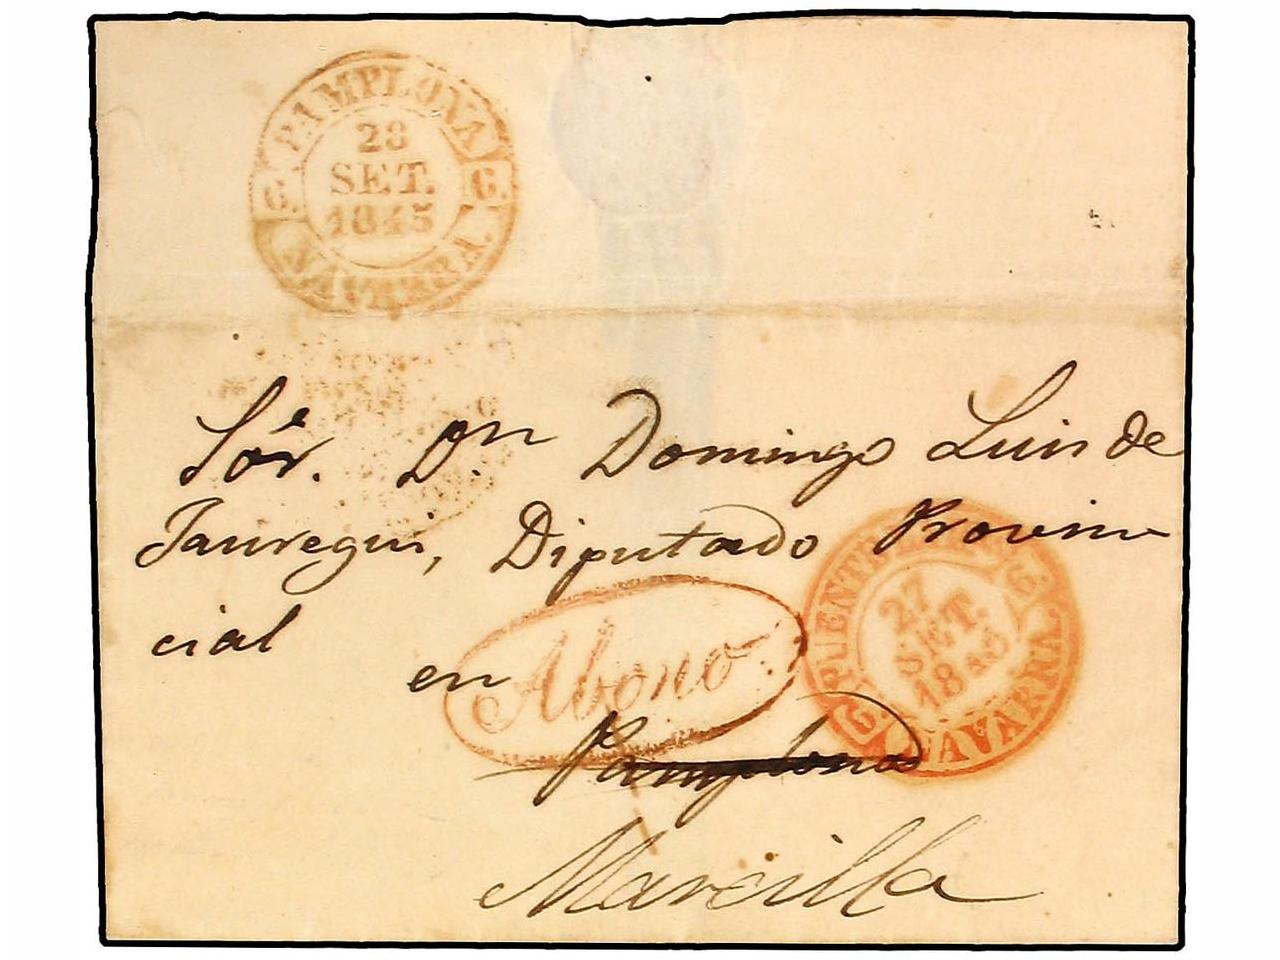 PAMPLONA
G. 28 G.
SET.
1845
NAVARRA.
Sór. Dn Domingo Luis de
Jauregui, Diputado Provin
cial
en
Pamplona
Marcilla
Abono
PUENTE
27
SET.
1845
G. G.
NAVARRA